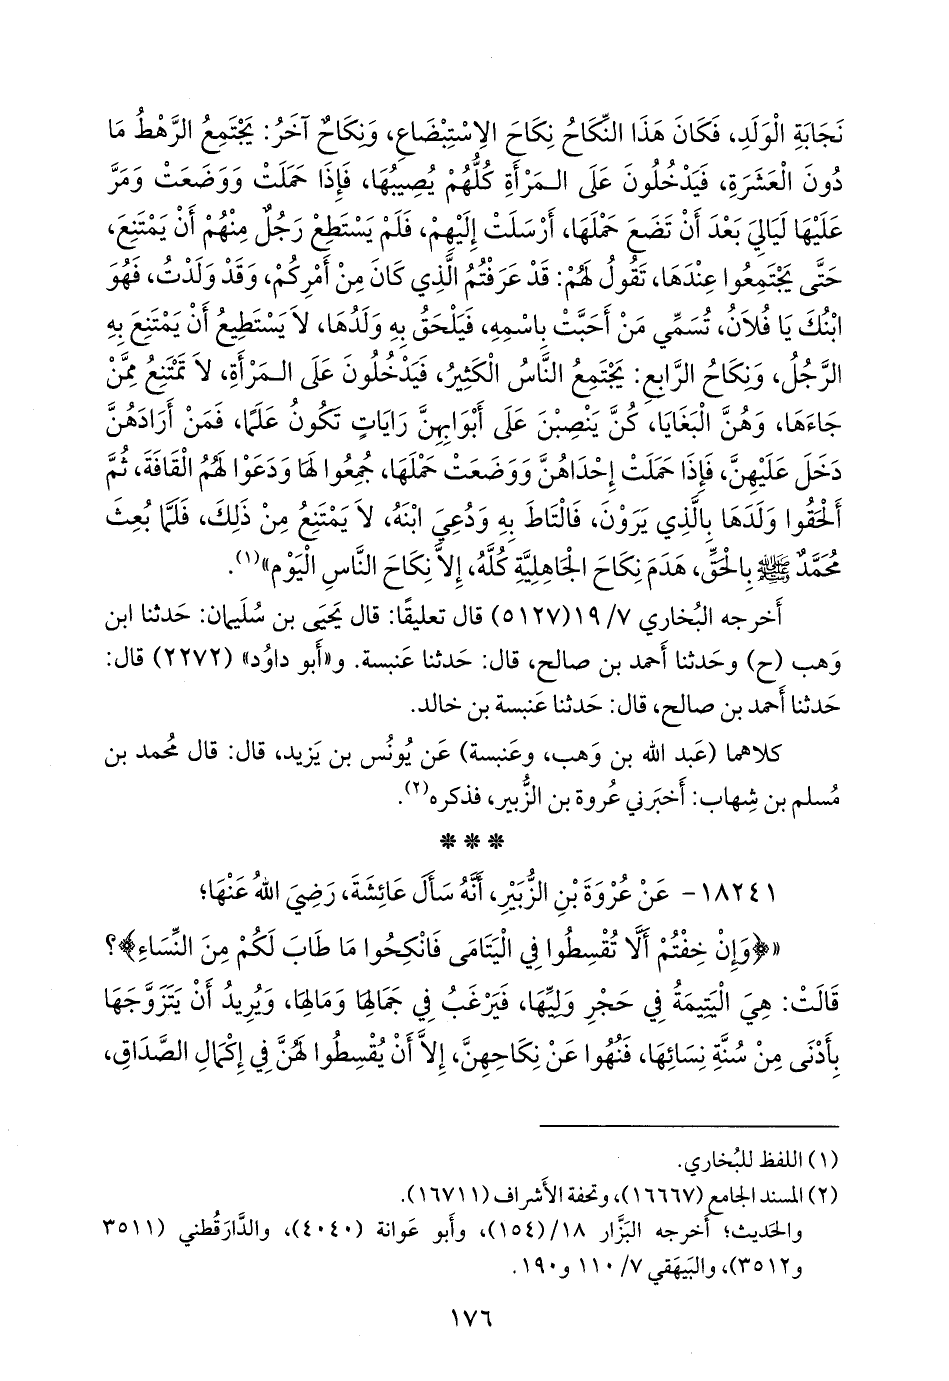 نَجَابَةِ الْوَلَدِ، فَكَانَ هَذَا النِّكَاحُ نِكَاحَ الاِسْتِبْضَاعِ، وَنِكَاحٌ آخَرُ: يَجْتَمِعُ الرَّهْطُ مَا
دُونَ الْعَشَرَةِ، فَيَدْخُلُونَ عَلَى الْمَرْأَةِ كُلُّهُمْ يُصِيبُهَا، فَإِذَا حَمَلَتْ وَوَضَعَتْ وَمَرَّ
عَلَيْهَا لَيَالِيَ بَعْدَ أَنْ تَضَعَ حَمْلَهَا، أَرْسَلَتْ إِلَيْهِمْ، فَلَمْ يَسْتَطِعْ رَجُلٌ مِنْهُمْ أَنْ يَمْتَنِعَ،
حَتَّى يَجْتَمِعُوا عِنْدَهَا، تَقُولُ لَهُمْ: قَدْ عَرَفْتُمُ الَّذِي كَانَ مِنْ أَمْرِكُمْ، وَقَدْ وَلَدْتُ، فَهُوَ
ابْنُكَ يَا فُلاَنُ، تُسَمِّي مَنْ أَحَبَّتْ بِاسْمِهِ، فَيَلْحَقُ بِهِ وَلَدُهَا، لاَ يَسْتَطِيعُ أَنْ يَمْتَنِعَ بِهِ
الرَّجُلُ، وَنِكَاحُ الرَّابِعِ: يَجْتَمِعُ النَّاسُ الْكَثِيرُ، فَيَدْخُلُونَ عَلَى الْمَرْأَةِ، لاَ تَمْتَنِعُ مِمَّنْ
جَاءَهَا، وَهُنَّ الْبَغَايَا، كُنَّ يَنْصِبْنَ عَلَى أَبْوَابِهِنَّ رَايَاتٍ تَكُونُ عَلَمًا، فَمَنْ أَرَادَهُنَّ
دَخَلَ عَلَيْهِنَّ، فَإِذَا حَمَلَتْ إِحْدَاهُنَّ وَوَضَعَتْ حَمْلَهَا، جُمِعُوا لَهَا وَدَعَوْا لَهُمُ الْقَافَةَ، ثُمَّ
أَلْحَقُوا وَلَدَهَا بِالَّذِي يَرَوْنَ، فَالْتَاطَ بِهِ وَدُعِيَ ابْنَهُ، لاَ يَمْتَنِعُ مِنْ ذَلِكَ، فَلَمَّا بُعِثَ
مُحَمَّدٌ ﷺ بِالْحَقِّ، هَدَمَ نِكَاحَ الْجَاهِلِيَّةِ كُلَّهُ، إِلاَّ نِكَاحَ النَّاسِ الْيَوْمَ»(١).
أخرجه البُخاري ٧/ ١٩(٥١٢٧) قال تعليقًا: قال يَحيَى بن سُليمان: حَدثنا ابن
وَهب (ح) وحَدثنا أحمد بن صالح، قال: حَدثنا عَنبسة. و«أبو داوُد» (٢٢٧٢) قال:
حَدثنا أحمد بن صالح، قال: حَدثنا عَنبسة بن خالد.
كلاهما (عَبد الله بن وَهب، وعَنبسة) عَن يُونُس بن يَزيد، قال: قال مُحمد بن
مُسلم بن شِهاب: أخبَرني عُروة بن الزُّبير، فذكره(٢).
* * *
١٨٢٤١- عَنْ عُرْوَةَ بْنِ الزُّبَيْرِ، أَنَّهُ سَأَلَ عَائِشَةَ، رَضِيَ اللهُ عَنْهَا؛
«﴿وَإِنْ خِفْتُمْ أَلَّا تُقْسِطُوا فِي الْيَتَامَى فَانْكِحُوا مَا طَابَ لَكُمْ مِنَ النِّسَاءِ﴾؟
قَالَتْ: هِيَ الْيَتِيمَةُ فِي حَجْرِ وَلِيِّهَا، فَيَرْغَبُ فِي جَمَالِهَا وَمَالِهَا، وَيُرِيدُ أَنْ يَتَزَوَّجَهَا
بِأَدْنَى مِنْ سُنَّةِ نِسَائِهَا، فَنُهُوا عَنْ نِكَاحِهِنَّ، إِلاَّ أَنْ يُقْسِطُوا لَهُنَّ فِي إِكْمَالِ الصَّدَاقِ،
(١) اللفظ للبُخاري.
(٢) المسند الجامع (١٦٦٦٧)، وتحفة الأشراف (١٦٧١١).
والحَديث؛ أخرجه البَزَّار ١٨/(١٥٤)، وأبو عَوانة (٤٠٤٠)، والدَّارَقُطني (٣٥١١
و٣٥١٢)، والبَيهَقي ٧/ ١١٠ و١٩٠.
١٧٦